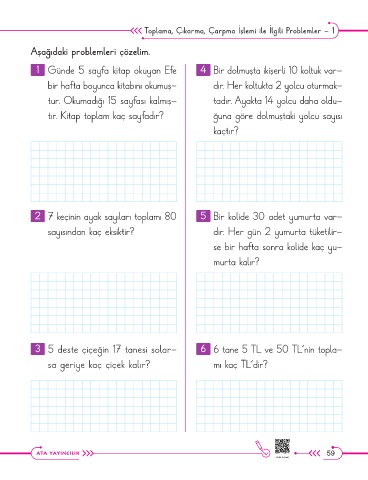 Toplama, Çıkarma, Çarpma İşlemi ile İlgili Problemler - 1
Aşağıdaki problemleri çözelim.
1 Günde 5 sayfa kitap okuyan Efe
bir hafta boyunca kitabını okumuş-
tur. Okumadığı 15 sayfası kalmış-
tır. Kitap toplam kaç sayfadır?
2 7 keçinin ayak sayıları toplamı 80
sayısından kaç eksiktir?
3 5 deste çiçeğin 17 tanesi solar-
sa geriye kaç çiçek kalır?
4 Bir dolmuşta ikişerli 10 koltuk var-
dır. Her koltukta 2 yolcu oturmak-
tadır. Ayakta 14 yolcu daha oldu-
ğuna göre dolmuştaki yolcu sayısı
kaçtır?
5 Bir kolide 30 adet yumurta var-
dır. Her gün 2 yumurta tüketilir-
se bir hafta sonra kolide kaç yu-
murta kalır?
6 6 tane 5 TL ve 50 TL'nin topla-
mı kaç TL'dir?
ATA YAYINCILIK
59